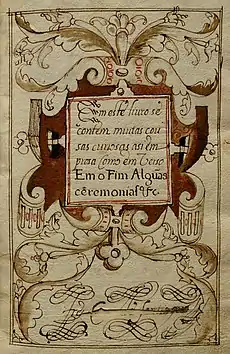 Em este livro sê
contem muitas cou
sas curiosas asi em
proza Como em Verso
Em o Fim Alguãs
cêremonias &c.